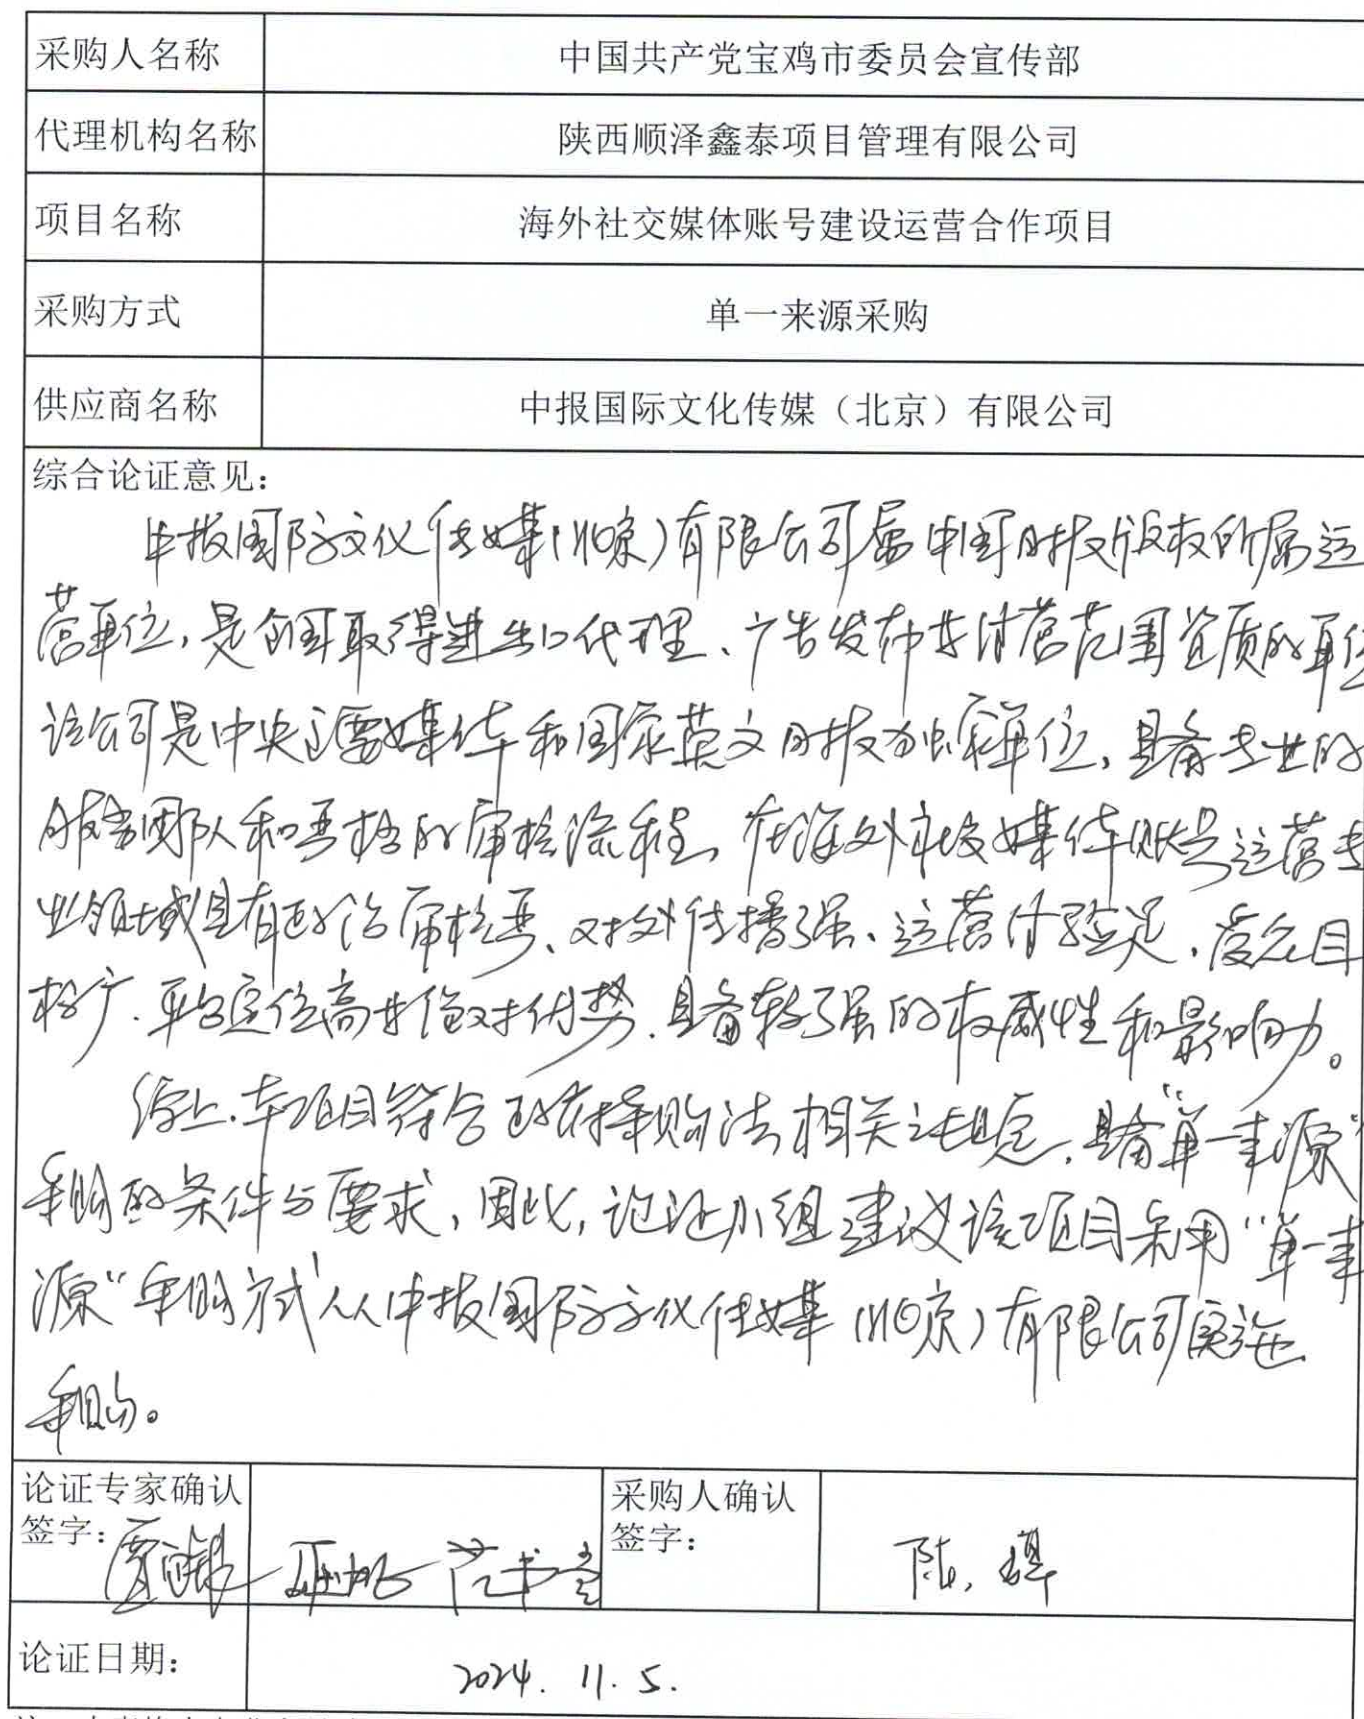 采购人名称 中国共产党宝鸡市委员会宣传部
代理机构名称 陕西顺泽鑫泰项目管理有限公司
项目名称 海外社交媒体账号建设运营合作项目
采购方式 单一来源采购
供应商名称 中报国际文化传媒（北京）有限公司
综合论证意见：
中报国际文化传媒（北京）有限公司属中国日报版权所属运
营单位，是全国取得进出口代理、广告发布等经营范围资质的单位
该公司是中央主要媒体和国家英文日报独家单位，具备专业的
服务团队和严格的审核流程，在海外社交媒体账号运营专
业领域具有政治审核严、对外传播强、运营经验足、受众目
标广、平台定位高等绝对优势，具备较强的权威性和影响力。
综上，本项目符合政府采购法相关之规定，具备“单一来源”
采购的条件与要求，因此，论证小组建议该项目采用“单一来
源”采购方式从中报国际文化传媒（北京）有限公司实施
采购。
论证专家确认 采购人确认
签字： 签字：
论证日期： 2024. 11. 5.